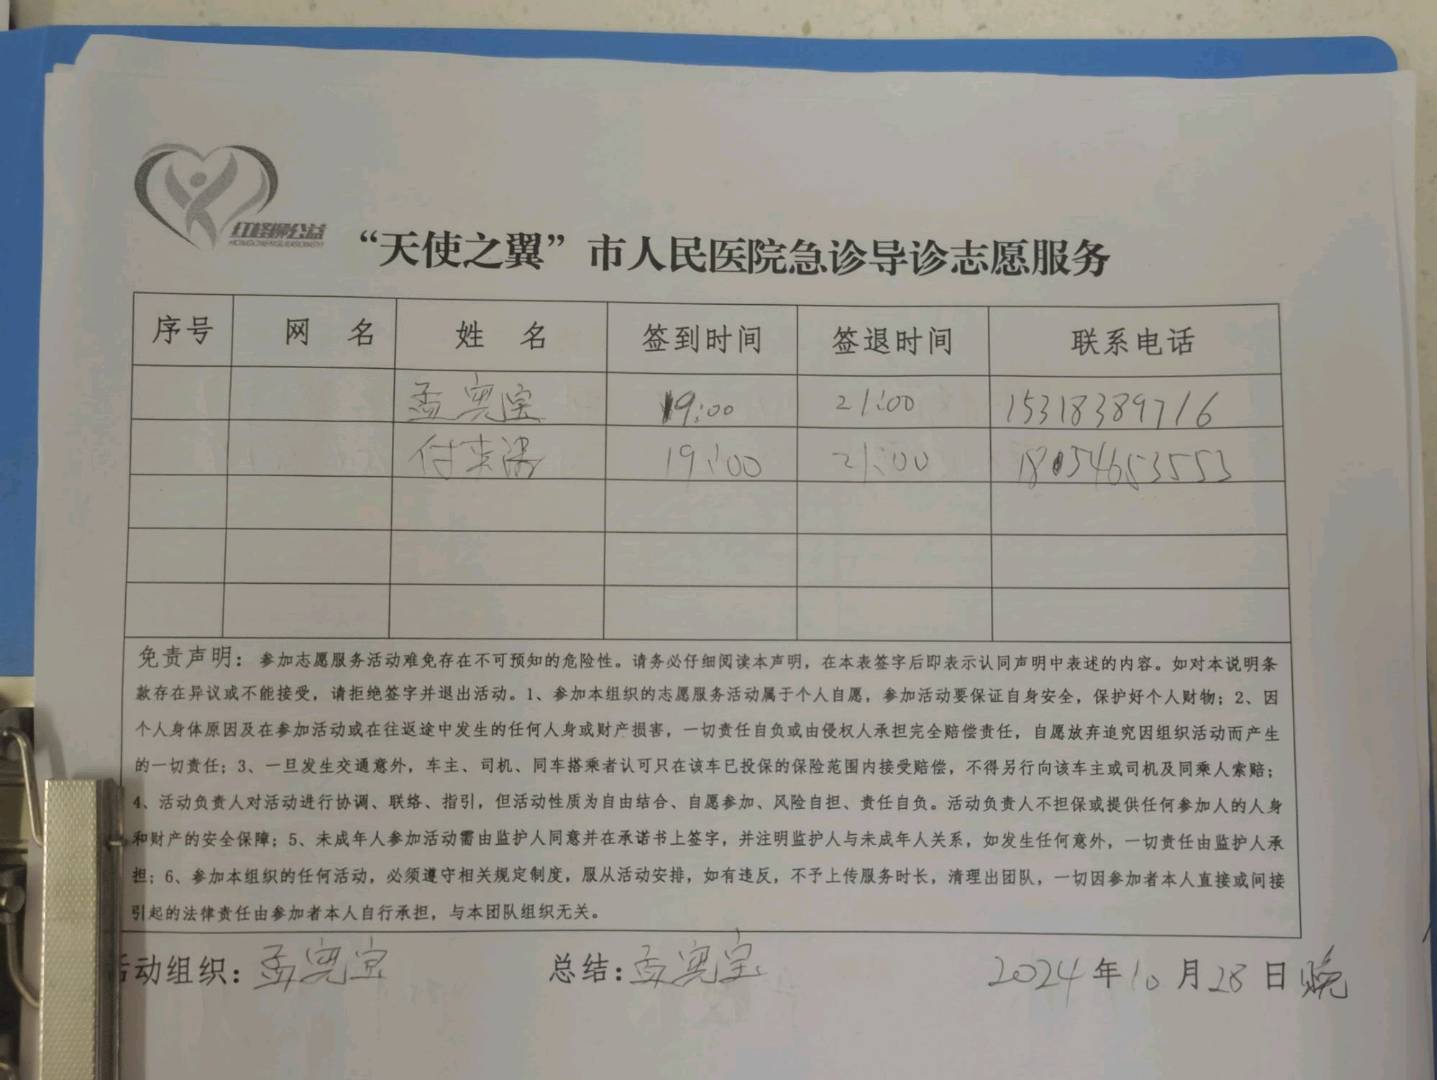 红嶝柳公益
“天使之翼”市人民医院急诊导诊志愿服务
序号 网 名 姓 名 签到时间 签退时间 联系电话
孟宪宝 19:00 21:00 15318389716
付 19:00 21:00 18054653553
免责声明：参加志愿服务活动难免存在不可预知的危险性。请务必仔细阅读本声明，在本表签字后即表示认同声明中表述的内容。如对本说明条
款存在异议或不能接受，请拒绝签字并退出活动。1、参加本组织的志愿服务活动属于个人自愿，参加活动要保证自身安全，保护好个人财物；2、因
个人身体原因及在参加活动或在往返途中发生的任何人身或财产损害，一切责任自负或由侵权人承担完全赔偿责任，自愿放弃追究因组织活动而产生
的一切责任；3、一旦发生交通意外，车主、司机、同车搭乘者认可只在该车已投保的保险范围内接受赔偿，不得另行向该车主或司机及同乘人索赔；
4、活动负责人对活动进行协调、联络、指引，但活动性质为自由结合、自愿参加、风险自担、责任自负。活动负责人不担保或提供任何参加人的人身
和财产的安全保障；5、未成年人参加活动需由监护人同意并在承诺书上签字，并注明监护人与未成年人关系，如发生任何意外，一切责任由监护人承
担；6、参加本组织的任何活动，必须遵守相关规定制度，服从活动安排，如有违反，不予上传服务时长，清理出团队，一切因参加者本人直接或间接
引起的法律责任由参加者本人自行承担，与本团队组织无关。
活动组织：孟宪宝 总结：孟宪宝 2024年10月28日晚